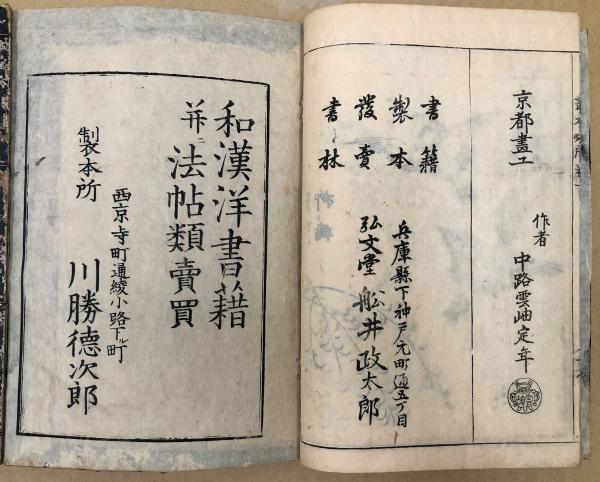 京都畫工
作者
中路雲岫定年
書籍
製本
發賣
書林
兵庫縣下神戸元町通五丁目
弘文堂 舩井政太郎
和漢洋書籍
并ニ法帖類賣買
製本所
西京寺町通綾小路下ル町
川勝德次郎